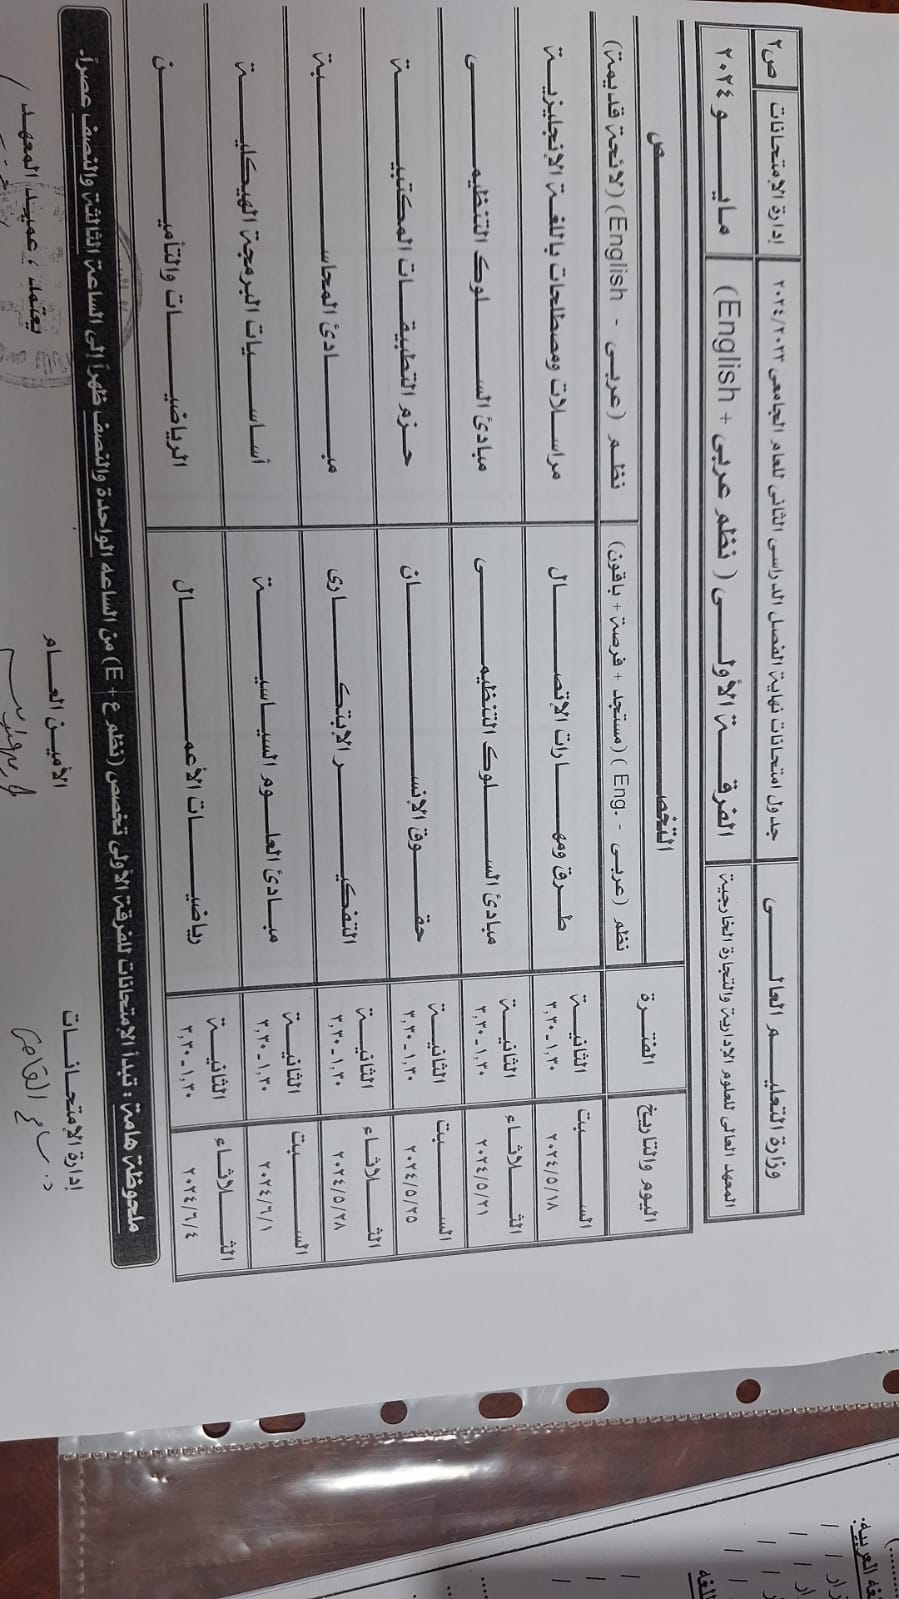 وزارة التعليم العالى
المعهد العالى للعلوم الادارية والتجارة الخارجية
جدول امتحانات نهاية الفصل الدراسى الثانى للعام الجامعى ٢٠٢٤/٢٠٢٣
الفرقة الأولى ( نظم عربى + English )
إدارة الإمتحانات
ص٢
مايو ٢٠٢٤
اليوم والتاريخ
الفترة
التخصص
نظم (عربى - Eng. ) (مستجد + فرصة + باقون)
نظم (عربى - English) (لائحة قديمة)
السبت ٢٠٢٤/٥/١٨
الثانية ١,٣٠-٣,٣٠
طرق ومهارات الإتصال
مراسلات ومصطلحات باللغة الإنجليزية
الثلاثاء ٢٠٢٤/٥/٢١
الثانية ١,٣٠-٣,٣٠
مبادئ السلوك التنظيمى
مبادئ السلوك التنظيمى
السبت ٢٠٢٤/٥/٢٥
الثانية ١,٣٠-٣,٣٠
حقوق الإنسان
حزم التطبيقات المكتبية
الثلاثاء ٢٠٢٤/٥/٢٨
الثانية ١,٣٠-٣,٣٠
التفكير الإبتكارى
مبادئ المحاسبة
السبت ٢٠٢٤/٦/١
الثانية ١,٣٠-٣,٣٠
مبادئ العلوم السياسية
أساسيات البرمجة الهيكلية
الثلاثاء ٢٠٢٤/٦/٤
الثانية ١,٣٠-٣,٣٠
رياضيات الأعمال
الرياضيات والتأمين
ملحوظة هامة : تبدأ الامتحانات للفرقة الأولى تخصص (نظم ع + E) من الساعه الواحدة والنصف ظهراً إلى الساعة الثالثة والنصف عصراً.
إدارة الامتحانات
الأمين العام
يعتمد ، عميد المعهد